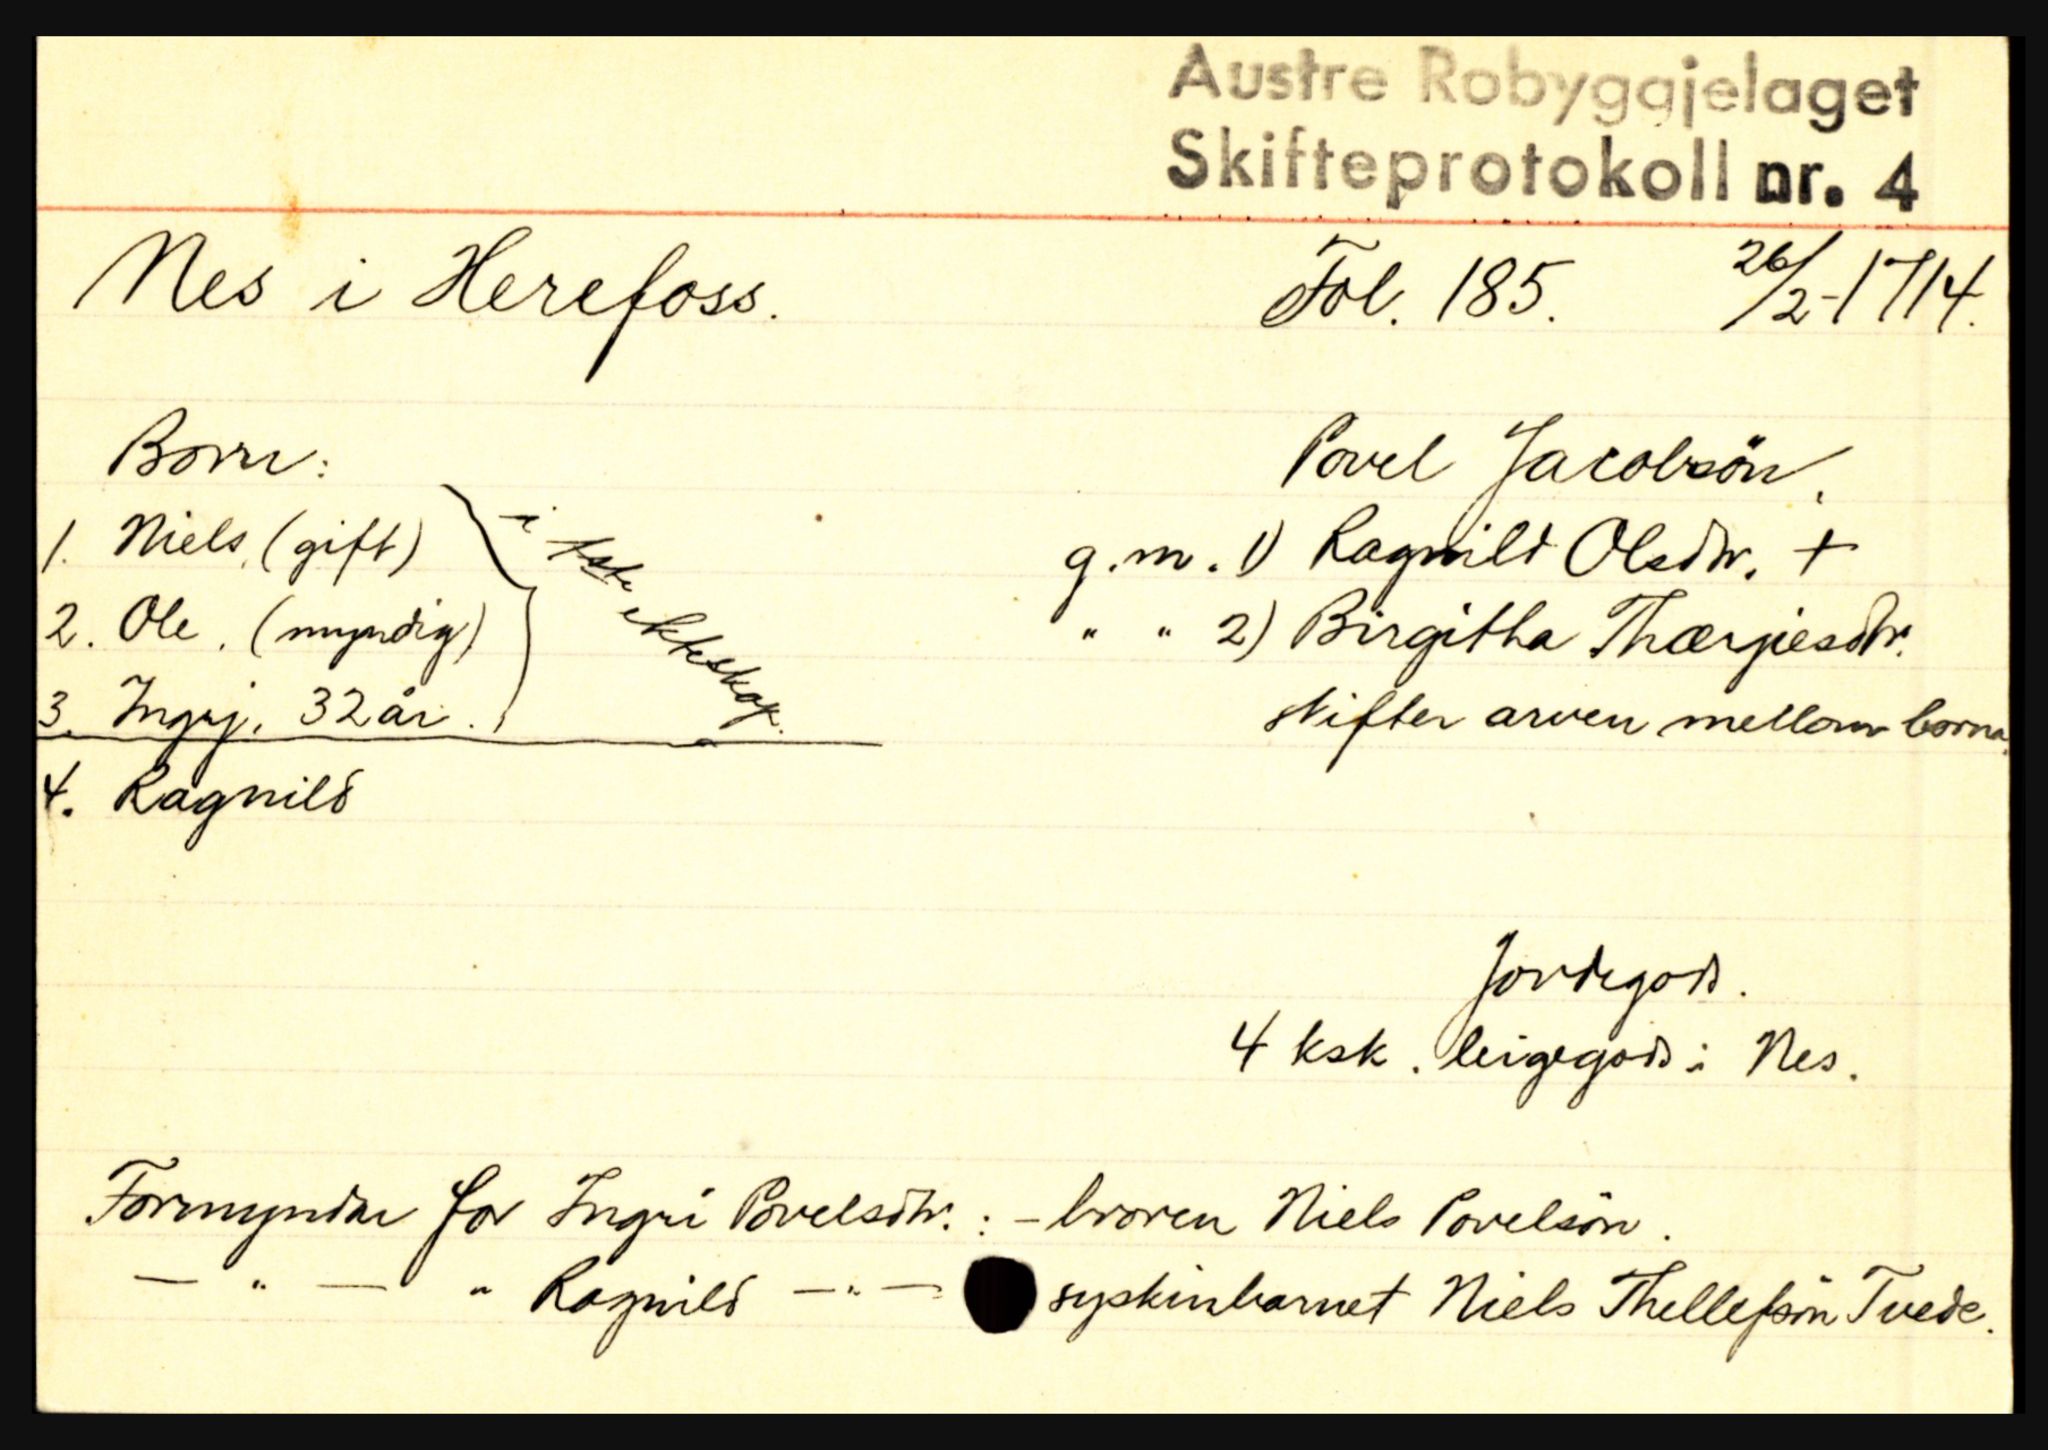 Austre Robyggjelaget
Skifteprotokoll nr. 4
Nes i Herefoss. Fol. 185. 26/2-1714.
Born:
1. Niels, (gift)
2. Ole, (myndig)
3. Ingrj, 32 år.
i 1ste ekteskap.
4. Ragnild
Povel Jacobsön,
g.m. 1) Ragnild Olsdtr. +
" " 2) Birgitha Thærjiesdtr.
skifter arven mellom borna.
Jordegods.
4 ksk. leigegods i Nes.
Formyndar for Ingri Povelsdtr. : - broren Niels Povelsön.
— " — " Ragnild — " — syskinbarnet Niels Thellefsön Tvede.